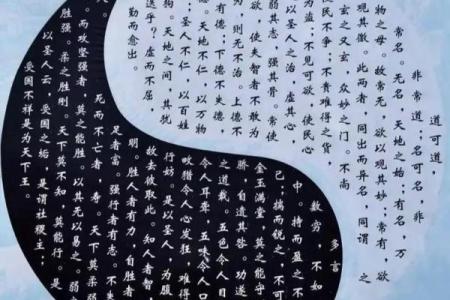 道可道，
非常道；名可名，非
常名。无名，天地之始；有名，万
物之母。故常无，欲以观其妙；常有，欲
以观其徼。此两者，同出而异名，同谓 之
玄之又玄，众妙之门。不尚
民不争；不贵难得之货，
为盗；不见可欲，使民心
以圣人之治，虚其心
弱其志，强其骨。常使
欲，使夫智者不敢为
则无不治。上德不
有德；下德不失德，
天地不仁，以万物
狗；圣人不仁，以百姓
狗。天地之间，其
乎？虚而不屈
动而愈出。
多言
数穷，不如
中。持而盈之不
已；揣而锐之，不可
金玉满堂，莫之能守
骄，自遗其咎。功遂
之道载。五色令人目
令人耳聋，五味令人口
畋猎令人心发狂，难得
行妨。是以圣人，为腹
故去彼取此。知人者智
明。胜人者有力，自胜者
足者富。强行者有志。不失
死而不亡者 寿。天下莫柔弱
而攻坚强者，莫之能胜，以其无以易之。弱
胜强。柔之胜刚。天下莫不知，莫能行。是
以圣人云，受国之垢，是谓社稷主；
受国不祥是为天下王。